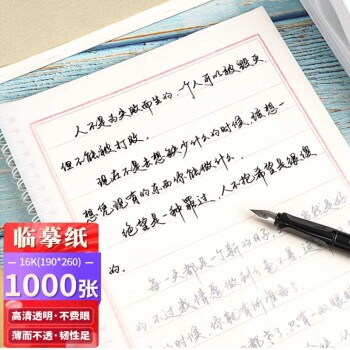 人不是为失败而生的,一个人可以被毁灭,
但不能被打败。
现在不是去想缺少什么的时候,该想一
想凭现有的东西你能做什么。
绝望是一种罪过,人不抱希望是很傻
的。
每一天都是一个新的日子。
临摹纸
16K(190*260)
1000张
高清透明·不费眼
薄而不透·韧性足